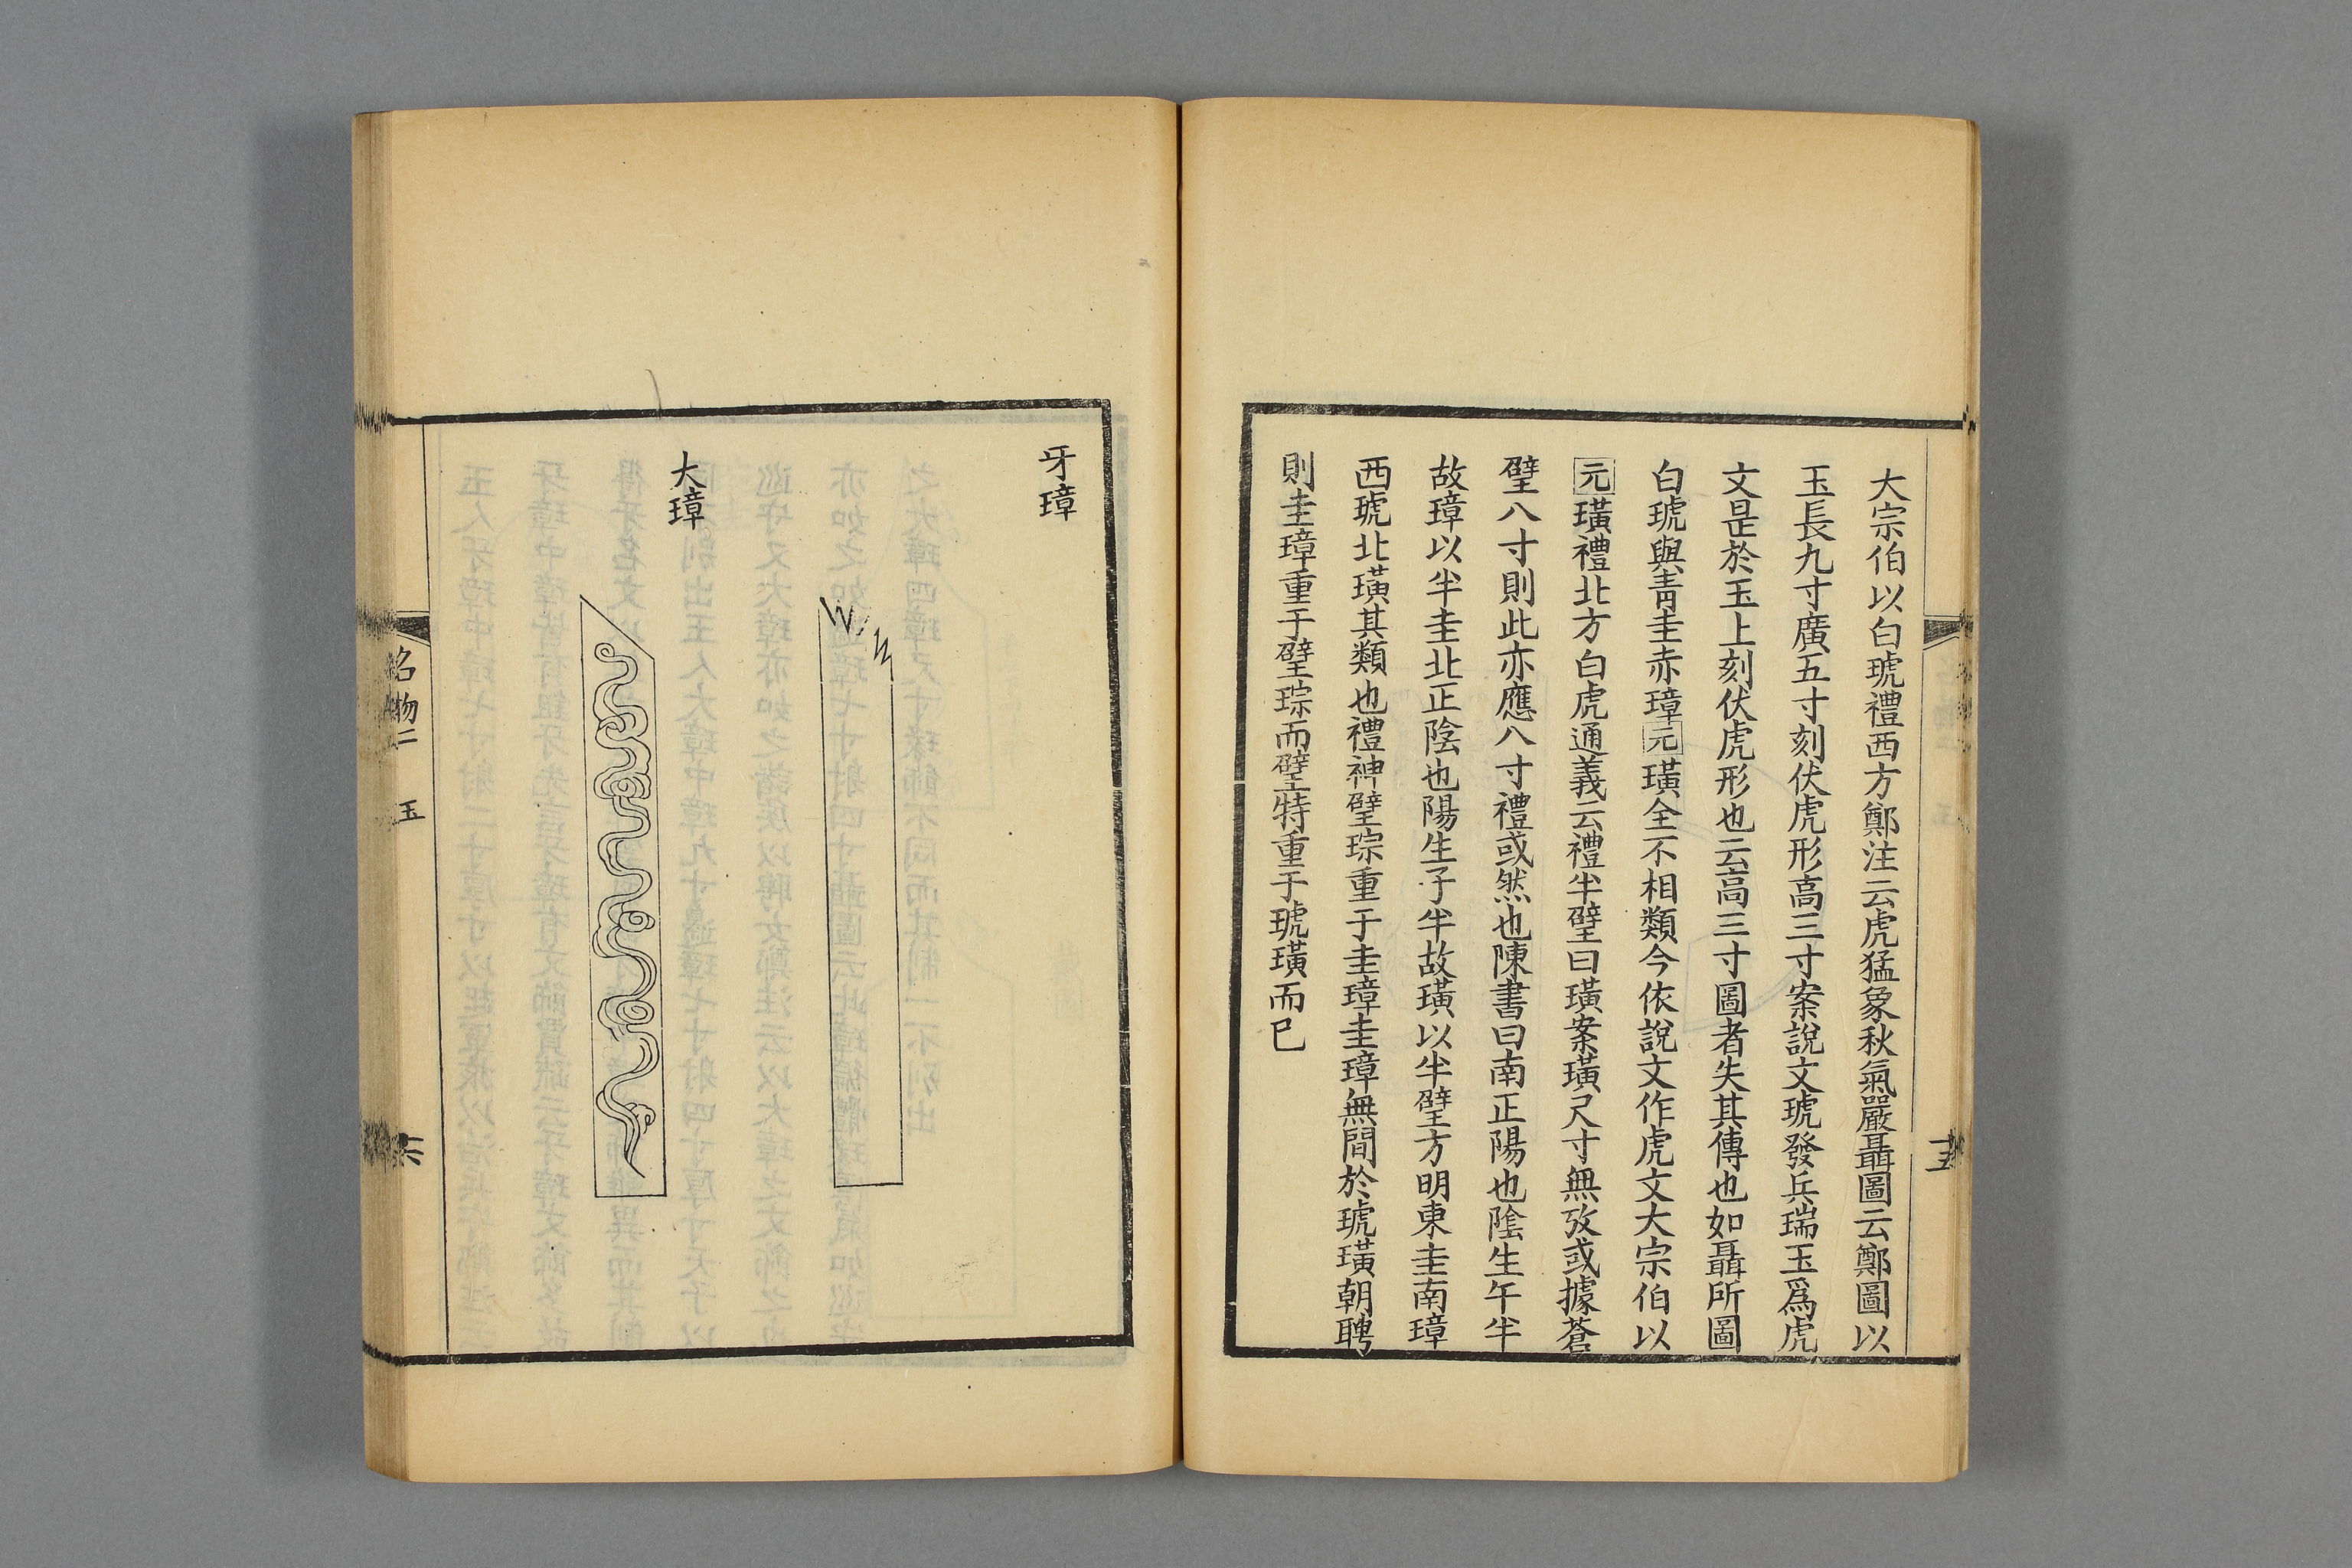 大宗伯以白琥禮西方鄭注云虎猛象秋氣嚴聶圖云鄭圖以
玉長九寸廣五寸刻伏虎形高三寸案說文琥發兵瑞玉爲虎
文是於玉上刻伏虎形也云高三寸圖者失其傳也如聶所圖
白琥與靑圭赤璋元璜全不相類今依說文作虎文大宗伯以
元璜禮北方白虎通義云禮半璧曰璜案璜尺寸無攷或據蒼
璧八寸則此亦應八寸禮或然也陳書曰南正陽也陰生午半
故璋以半圭北正陰也陽生子半故璜以半璧方明東圭南璋
西琥北璜其類也禮神璧琮重于圭璋圭璋無閒於琥璜朝聘
則圭璋重于璧琮而璧特重于琥璜而已
牙璋
大璋
名物二 玉